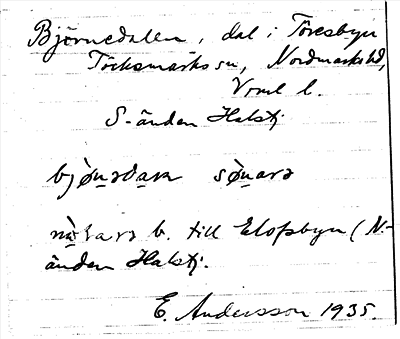 Björnedalen, dal i Töresbyn
Töcksmarks sn, Nordmarks hd,
Vrml l.
S-änden Halstj
bjö̀nədan sö̀narə
nòlarə b. till Elofsbyn (N-
änden Halstj.
E. Andersson 1935.